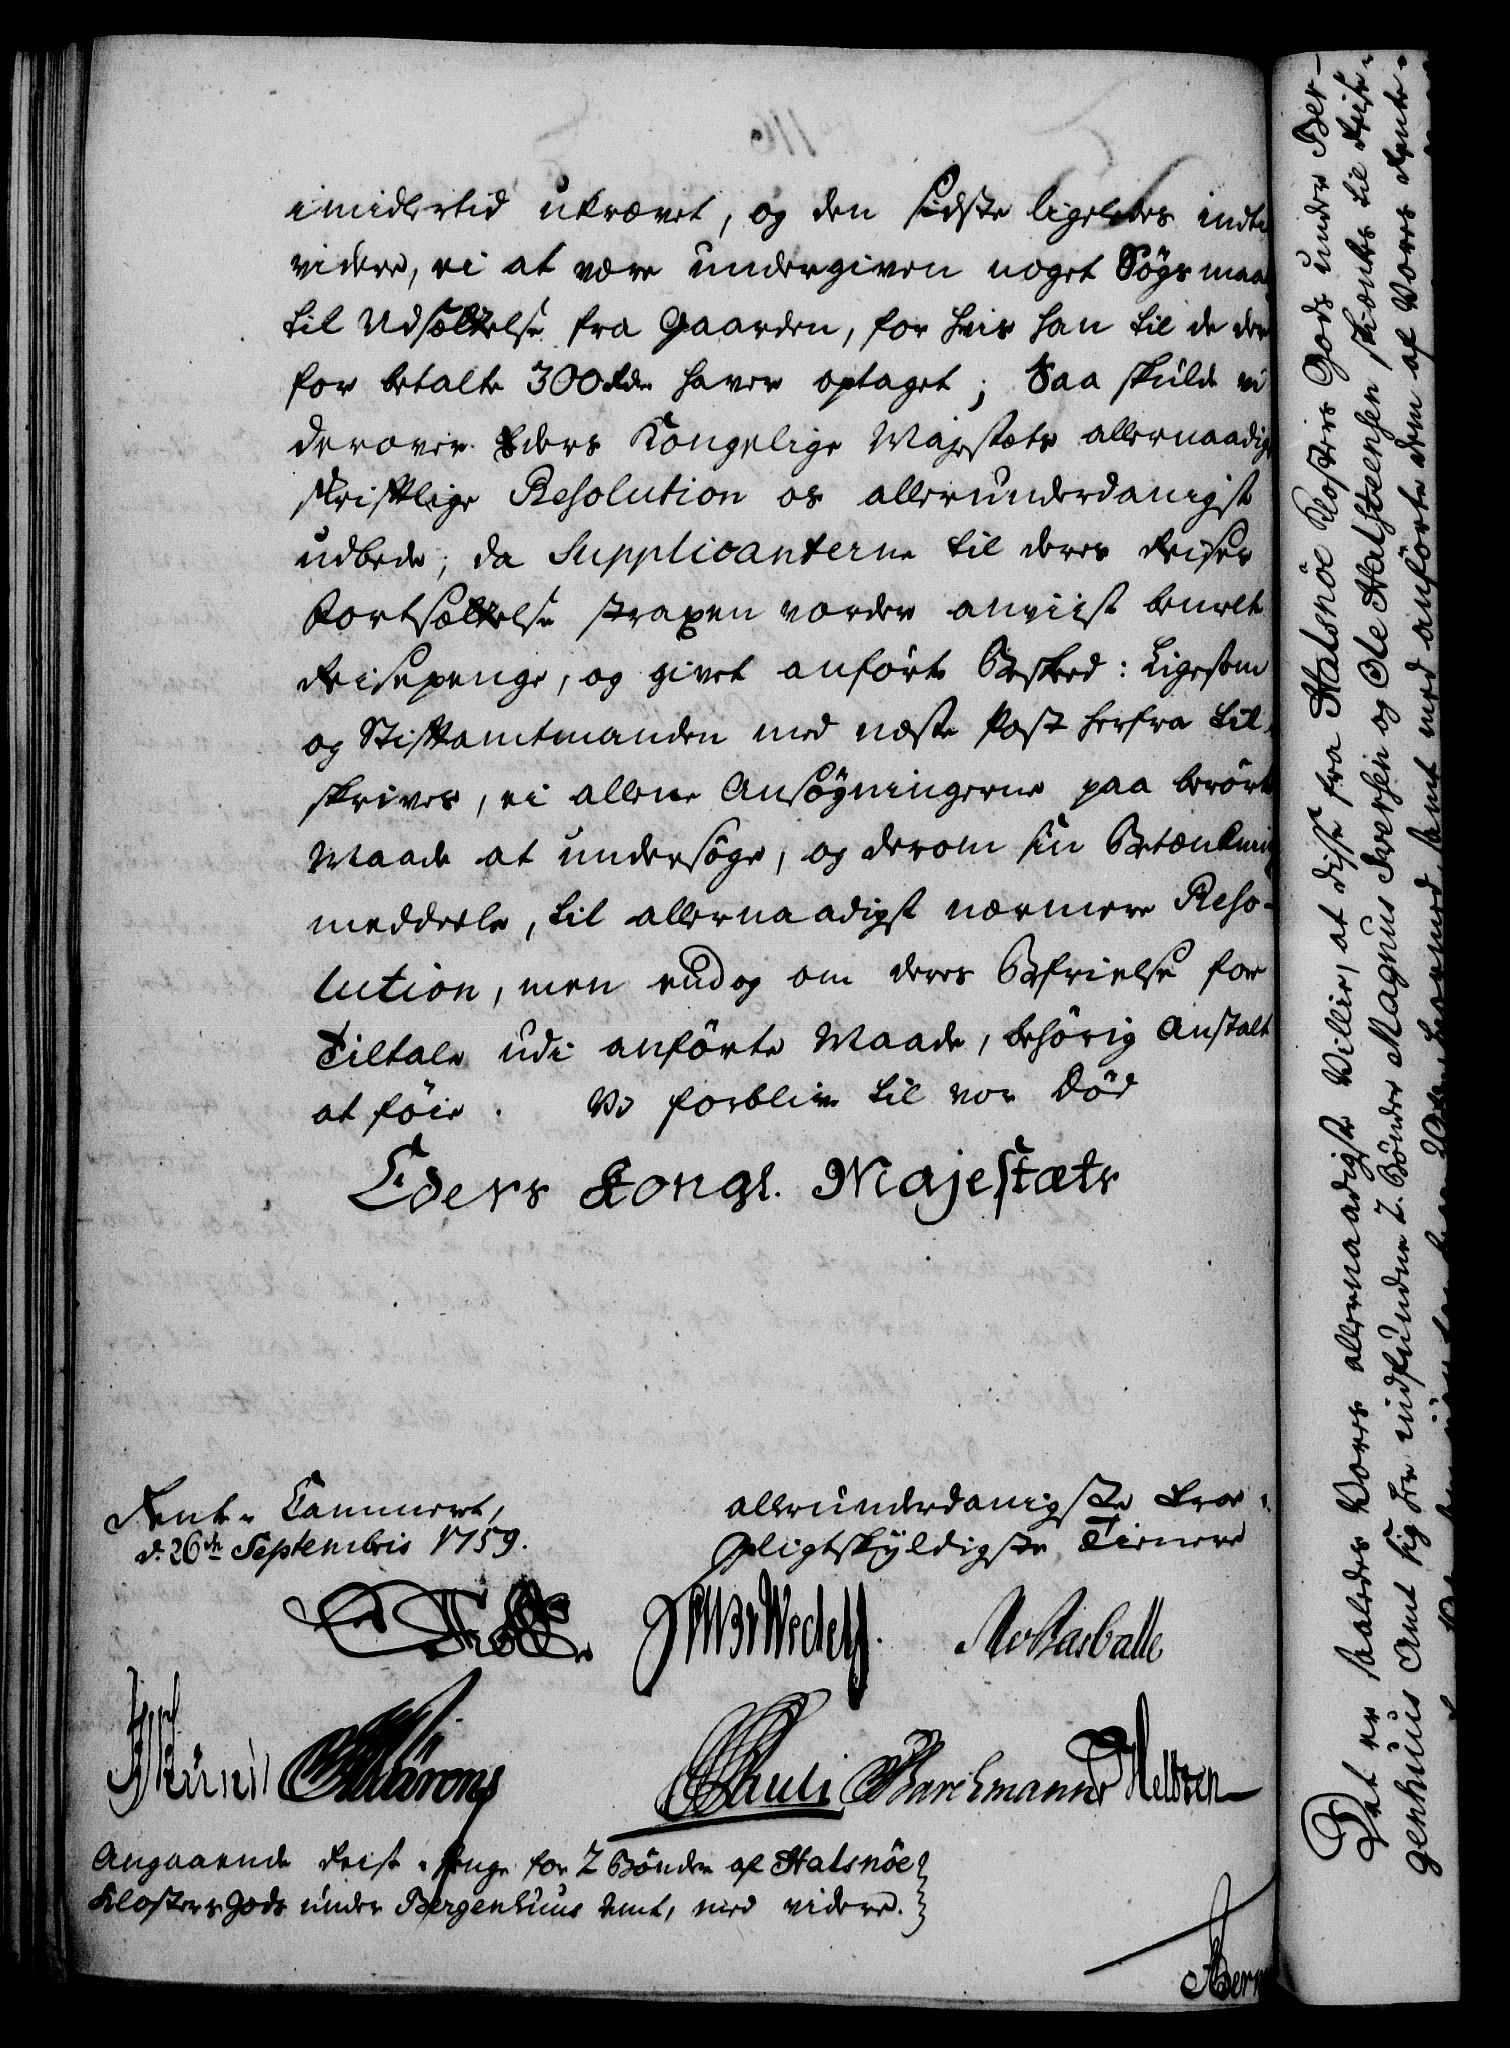 imidlertid ukrævet, og den sidste ligeledes indtil
videre, ei at være undergiven noget Søgsmaal
til Udsættelse fra Gaarden, for hvis han til de der
for betalte 300 Rdr haver optaget; Saa skulde vi
derover Eders Kongelige Majestæts allernaadigste
skriftlige Resolution os allerunderdanigst
udbede; da Supplicanterne til deres Reises
Fortsættelse straxen vorder anviist bemelte
Reisepenge, og givet anførte Besked: Ligesom
og Stiftamtmanden med næste Post herfra til-
skrives, ei allene Ansøgningerne paa berørte
Maade at undersøge, og derom sin Betænkning
meddeele, til allernaadigst nærmere Reso-
lution, men endog om deres Befrielse for
Tiltale udi anførte Maade, behørig Anstalt
at føie. Vi forblive til vor Død
Eders Kongl. Majestæts
Rente-Cammeret,
d. 26de Septembris 1759.
allerunderdanigste troe-
pligtskyldigste Tienere
Wedell. Barballe
Pauli Barchmann Heltzen
Angaaende Reise-Penge for 2 Bönder af Halsnøe
Closters Gods under Bergenhuus Amt, med videre.
Det er saaledes Vores allernaadigste Villie, at disse fra Halsnöe Klosters Gods under Ber-
genhuus Amt sig her indfundne 2. Bönder Magnus Iversen og Ole Halsteensen skiænkes til Reise-
med anførte dem af Vores Rente-